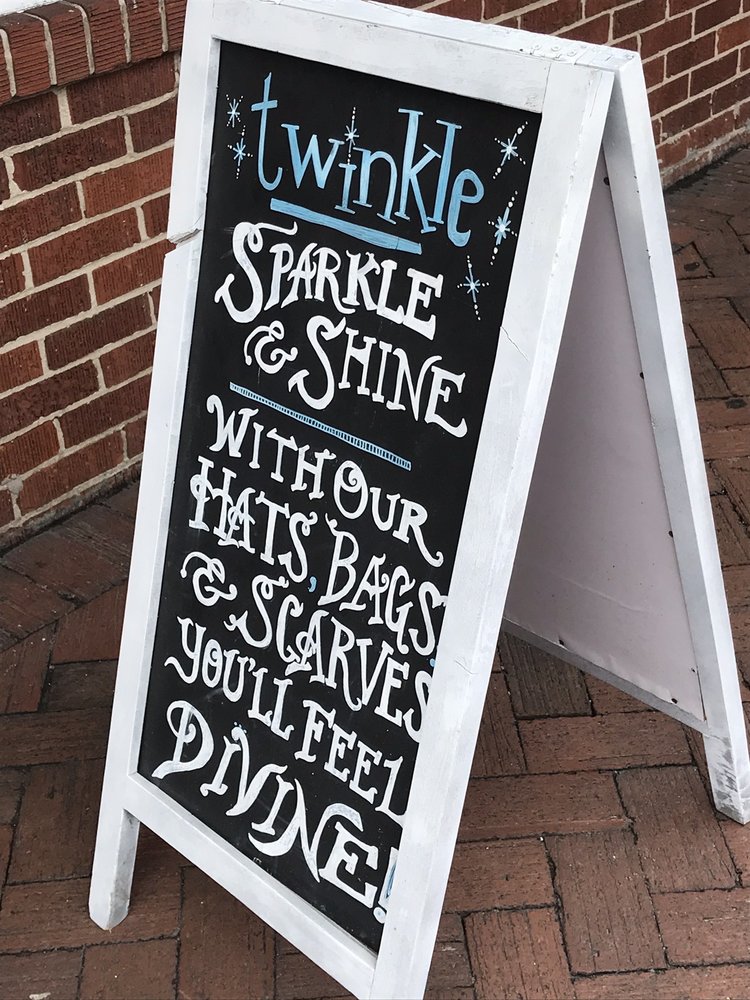 twinkle
SPARKLE
& SHINE
WITH OUR
HATS, BAGS,
& SCARVES
YOU'LL FEEL
DIVINE!